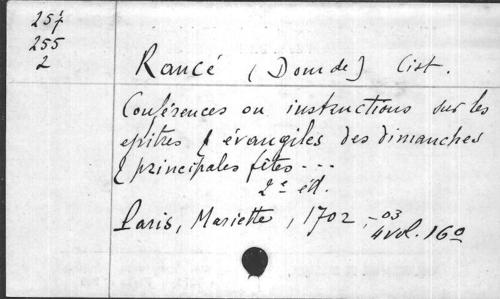 254
255
2
Rancé (Dom de) Cist.
Conférences ou instructions sur les
epitres & évangiles des dimanches
& principales fêtes ...
2e éd.
Paris, Mariette, 1702,-03
4 vol. 16o